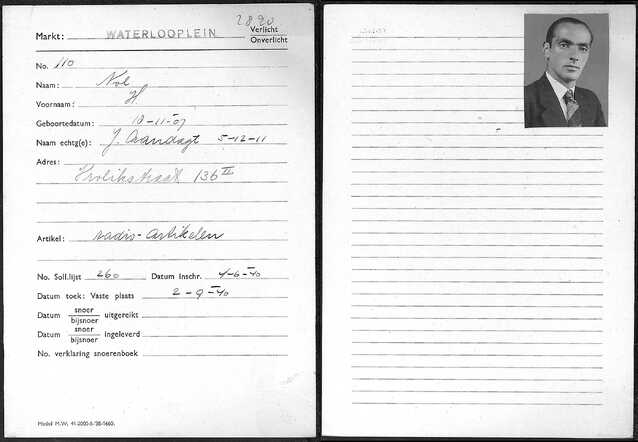 2890
Markt: WATERLOOPLEIN Verlicht
Onverlicht
No. 110
Naam: Nol
Voornaam: H
Geboortedatum: 10-11-07
Naam echtg(e): J. Aandagt 5-12-11
Adres:
Krolikstraat 136 II
Artikel: radio-artikelen
No. Soll.lijst 260 Datum Inschr. 4-6-40
Datum toek: Vaste plaats 2-9-40
Datum snoer uitgereikt
bijsnoer
Datum snoer ingeleverd
bijsnoer
No. verklaring snoerenboek